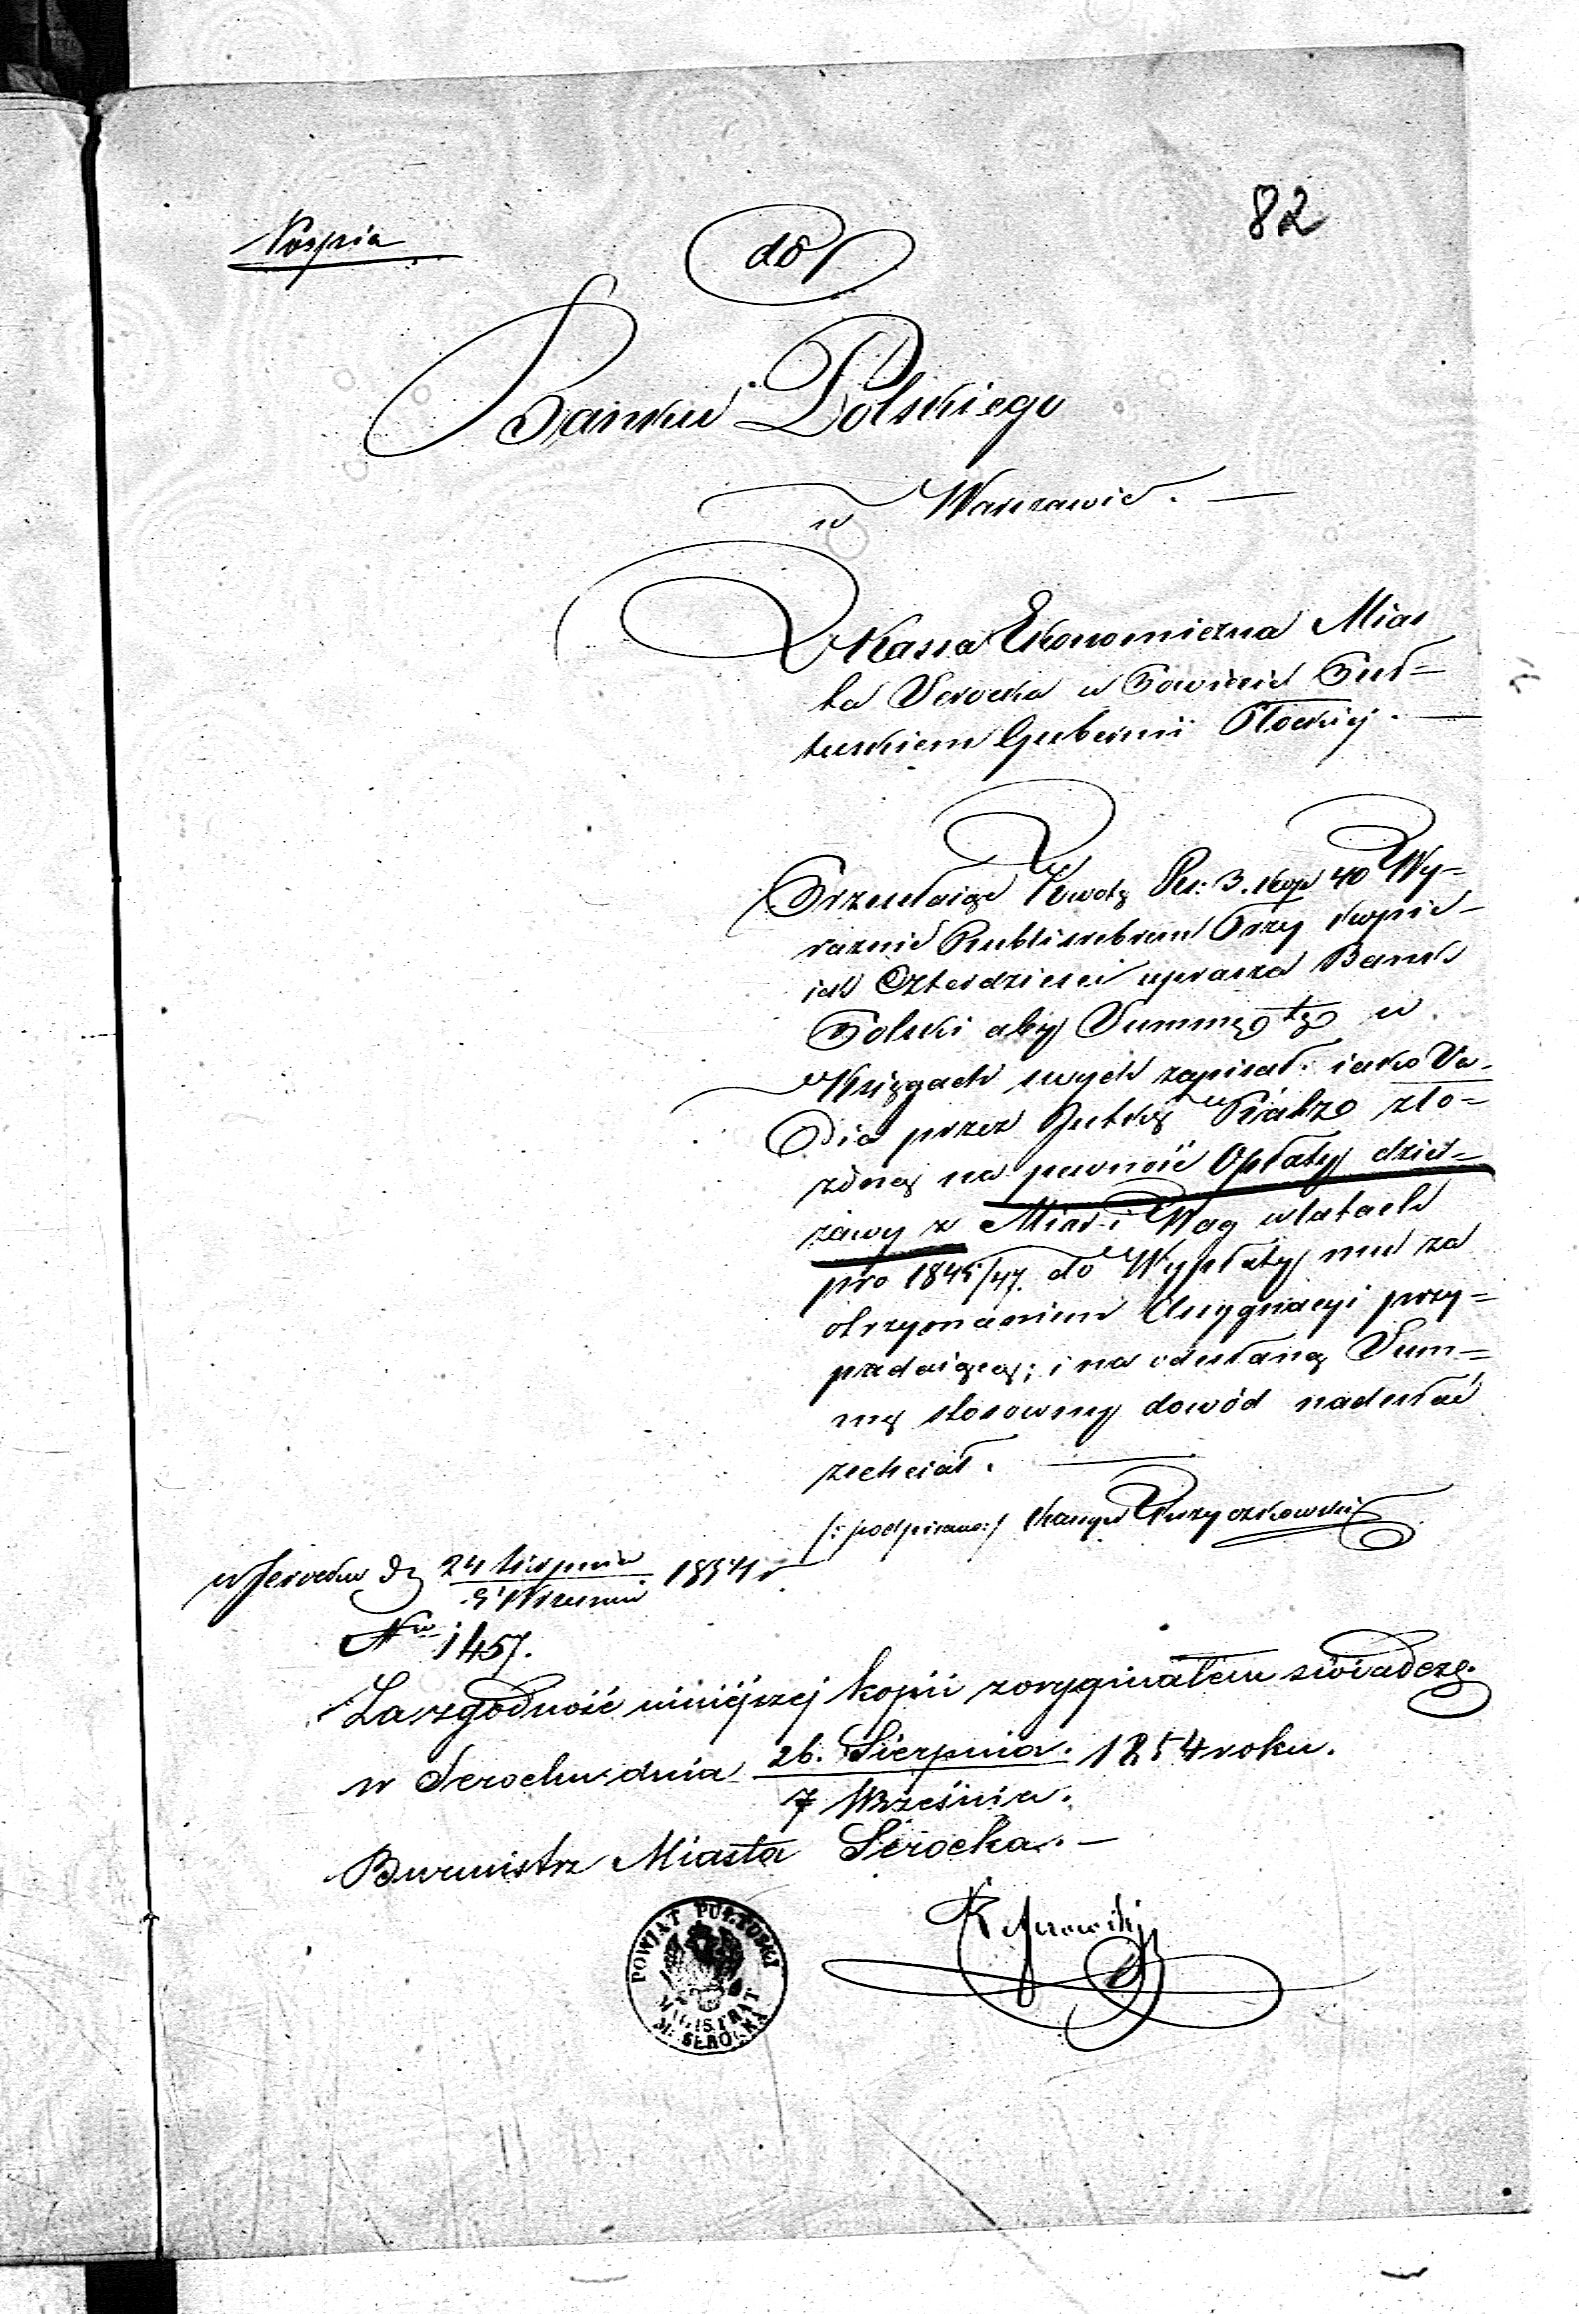 82
Kopia
do
Banku Polskiego
w Warszawie. —
Kassa Ekonomiczna Mias
ta Serocka w Powiecie Puł=
tuskiem Gubernii Płockiej. —
Przesłaiąc Kwotę Rs: 3. kop 40 Wy=
raznie Rubli srebrem Trzy kopie-
iek Czterdzieści uprasza Bank
Polski aby Summę tę w
Księgach swych zapisał iako Va-
dia przez zło=
żoną na pewność Opłaty dzier=
żawy z Miar i Wag w latach
pro 1845/47. do Wypłaty mu za
otrzymaniem Assygnacyi przy=
padaiącey; i na odesłaną Sum=
mę stosowny dowód nadesłać
zechciał. —
/: podpisano:/
w Serocku d. 24 Sierpnia 1854 r
5 Wrzesnia
Nro 1457.
Za zgodność niniéjszej kopii z oryginałem świadczę.
w Serocku dnia 26. Sierpnia. 1854 roku.
7 Września.
Burmistrz Miasta Serocka. —
POWIAT PUŁTUSKI
MAGISTRAT
M. SEROCKA